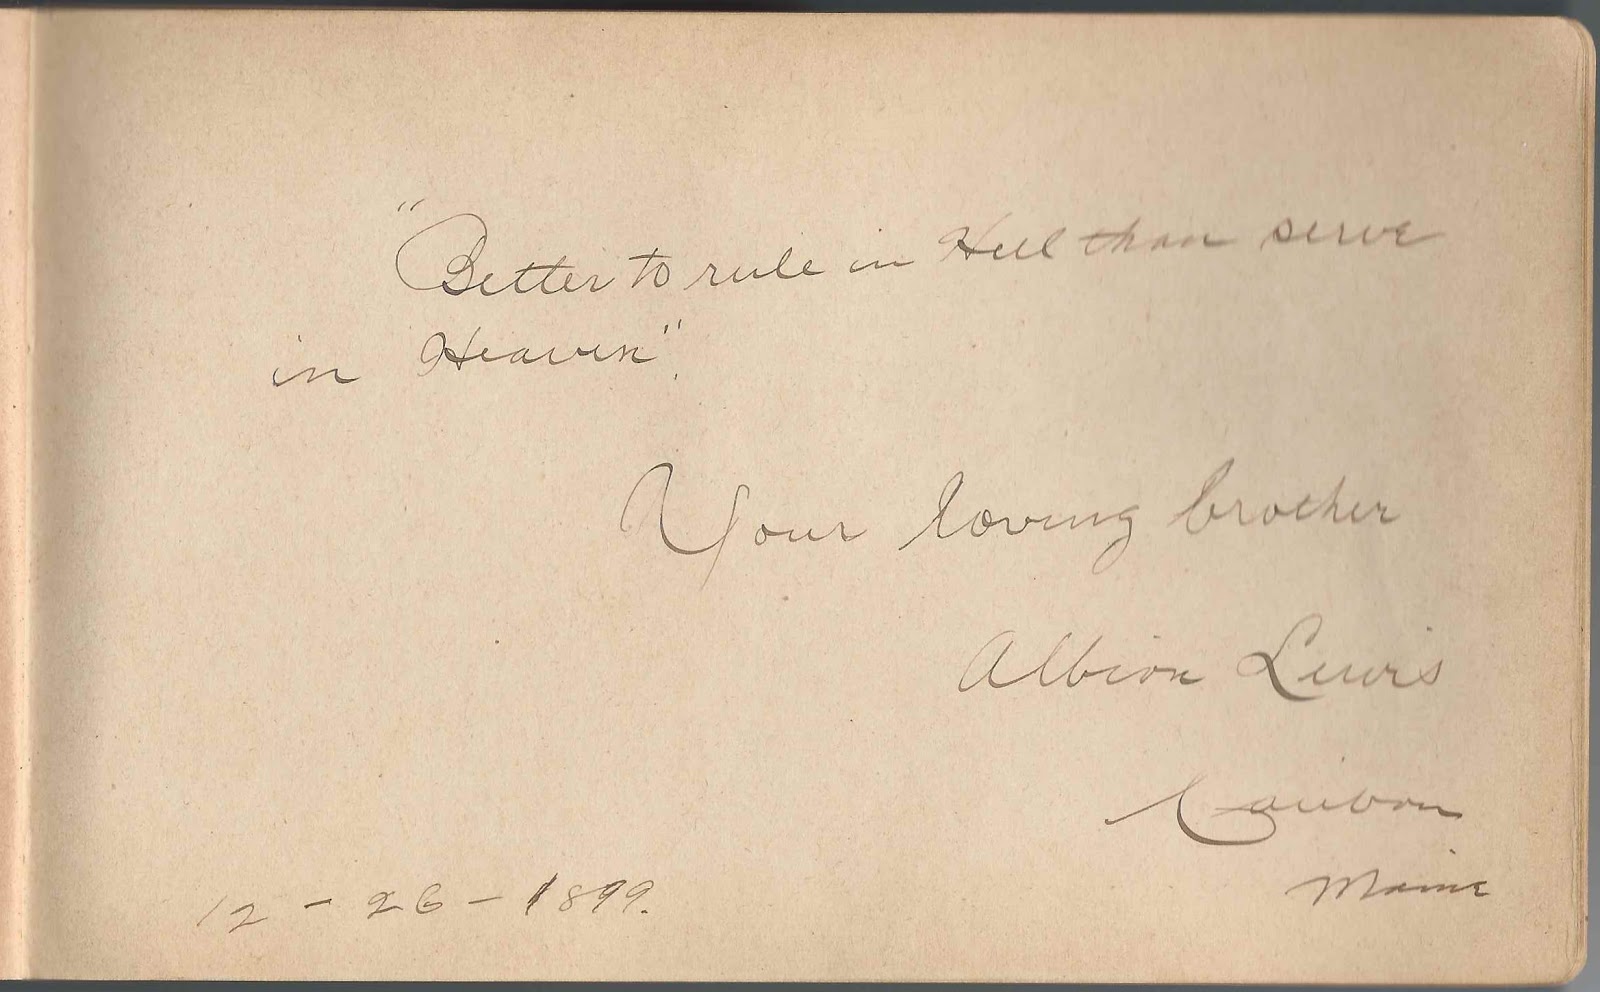 "Better to rule in Hell than serve
in Heaven".
Your loving brother
Albion Lewis
Caribou
Maine
12 - 26 - 1899.